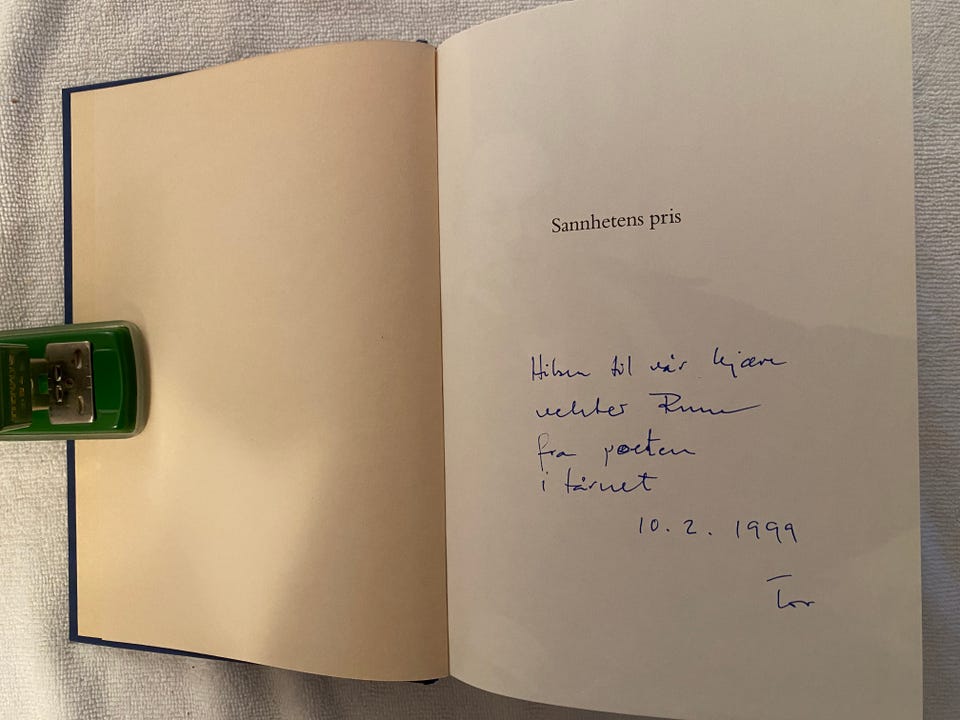 Sannhetens pris
Hilsen til vår kjære
vekter Rune
fra poeten
i tårnet
10.2.1999
Tor